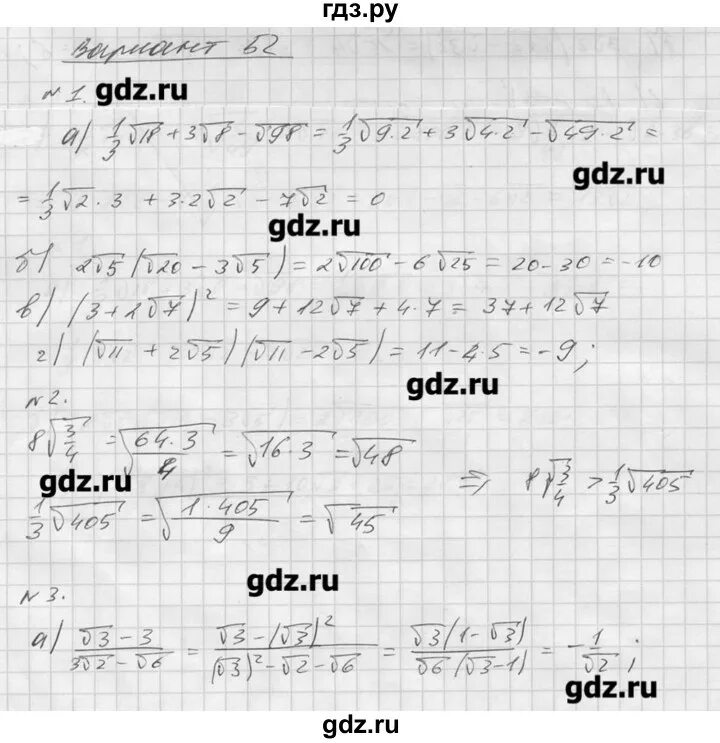 гдз.ру
Вариант Б2
№ 1. gdz.ru
а) 1/3 √18 + 3√8 − √98 = 1/3 √9·2 + 3√4·2 − √49·2 =
gdz.ru
= 1/3 √2 · 3 + 3·2√2 − 7√2 = 0
gdz.ru
б) 2√5 (√20 − 3√5) = 2√100 − 6√25 = 20 − 30 = −10
в) (3 + 2√7)² = 9 + 12√7 + 4·7 = 37 + 12√7
г) (√11 + 2√5)(√11 − 2√5) = 11 − 4·5 = −9;
gdz.ru
№ 2.
8√3/4 = √64·3/4 = √16·3 = √48
gdz.ru
⇒ 8√3/4 > 1/3 √405
1/3 √405 = √1·405/9 = √45
gdz.ru
№ 3.
а) √3 − 3/3√2 − √6 = √3 − (√3)²/(√3)² − √2 − √6 = √3(1 − √3)/√6(√3 − 1) = − 1/√2;
gdz.ru
gdz.ru